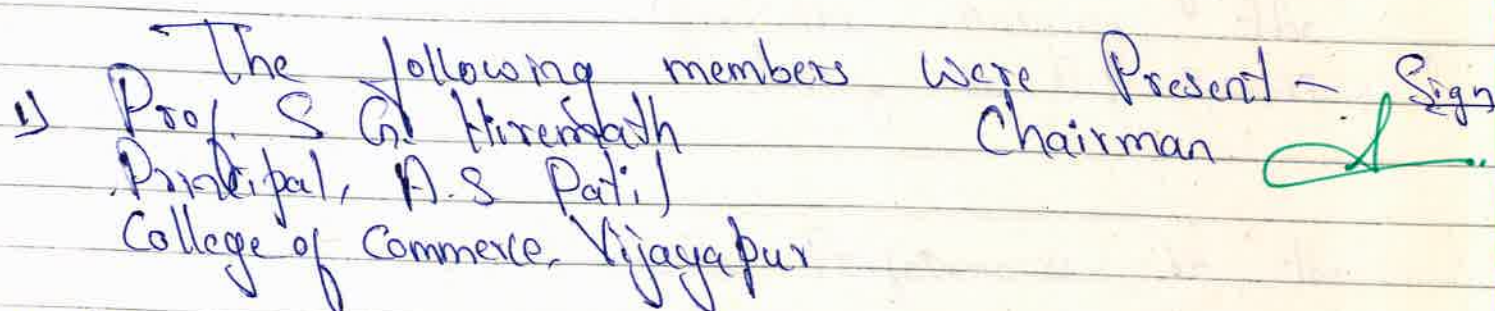 The following members were Present - Sign
1) Prof. S G Hiremath Chairman
Principal, A.S Patil
College of Commerce, Vijayapur